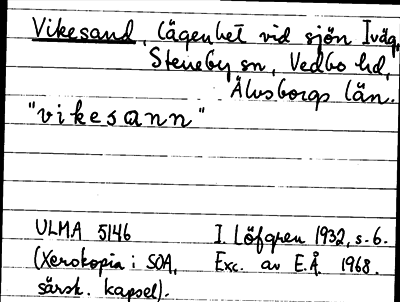 Vikesand, lägenhet vid sjön Iväg,
Steneby sn, Vedbo hd,
Älvsborgs län.
"vikesann"
ULMA 5146 I. Löfgren 1932, s. 6.
(Xerokopia i SOA, Exc. av E.Å. 1968.
särsk. kapsel).